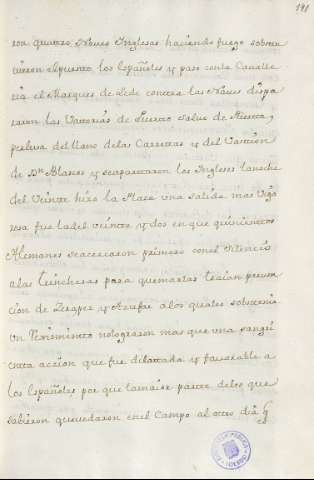 191
ron quatro Naues Inglesas haciendo fuego sobstu
uieron el puesto los españoles y paso conla Caualle
ria el Marques de Lede contra las Naues dispa
raron las Vatterias de Puerto salue de Sierra,
del llano delas Carreras y del Vastion
de Dn Blasco y seapartaron los Ingleses lanoche
del Veinte hizo la Plaza vna salida mas Vigo
rosa fue ladel veinte y dos en que quinientos
Alemanes seacercaron primero conel silencio
alas trincheras para quemarlas traian preuen
cion de y Azufre alos quales sobstenia
Un Reximiento nolograron mas que vna sangri
enta accion que fue dilattada y fauorable a
los Españoles por que lamaior partte delos que
salieron quedaron enel Campo al otro dia q